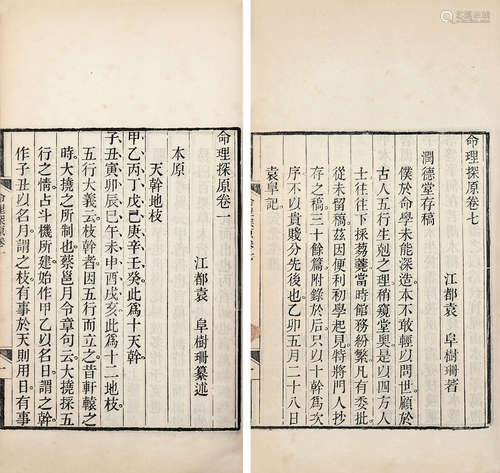 命理探原卷七
江都袁　阜樹珊著
潤德堂存稿
僕於命學未能深造本不敢輕以問世顧於
古人五行生剋之理稍窺堂奧是以四方人
士往往下採蒭蕘當時館務紛繁凡有委批
從未留稿茲因便利初學起見特將門人抄
存之稿三十餘篇附錄於后只以十幹爲次
序不以貴賤分先後也乙卯五月二十八日
袁阜記
命理探原卷一
江都袁　阜樹珊纂述
本原
天幹地枝
甲乙丙丁戊己庚辛壬癸此爲十天幹
子丑寅卯辰巳午未申酉戌亥此爲十二地枝
五行大義云枝幹者因五行而立之昔軒轅之
時大撓之所制也蔡邕月令章句云大撓採五
行之情占斗機所建始作甲乙以名日謂之幹
作子丑以名月謂之枝有事於天則用日有事
命理探原卷一
一